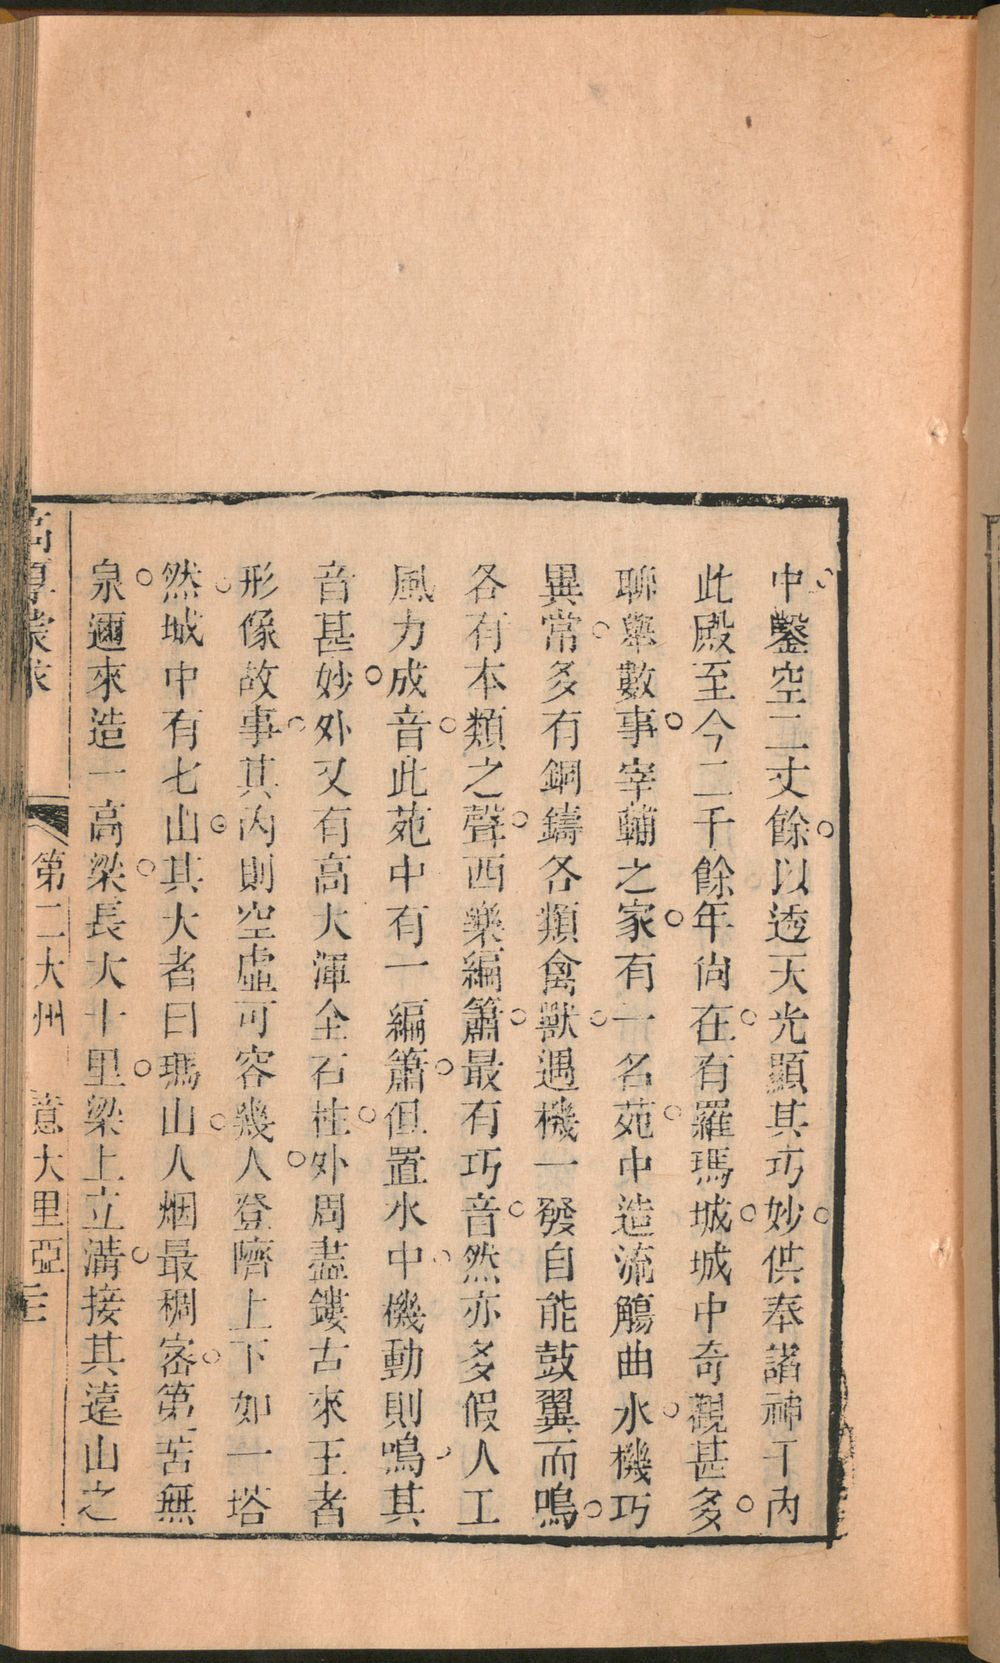 中鑿空二丈餘以透天光顯其巧妙供奉諸神于內
此殿至今二千餘年尙在有羅瑪城城中奇觀甚多
聊舉數事宰輔之家有一名苑中造流觴曲水機巧
異常多有銅鑄各類禽獸遇機一發自能鼓翼而鳴
各有本類之聲西樂編簫最有巧音然亦多假人工
風力成音此苑中有一編簫但置水中機動則鳴其
音甚妙外又有高大渾全石柱外周盡鏤古來王者
形像故事其內則空虛可容幾人登隮上下如一塔
然城中有七山其大者曰瑪山人烟最稠密第苦無
泉邇來造一高梁長大十里梁上立溝接其遠山之
第二大州 意大里亞